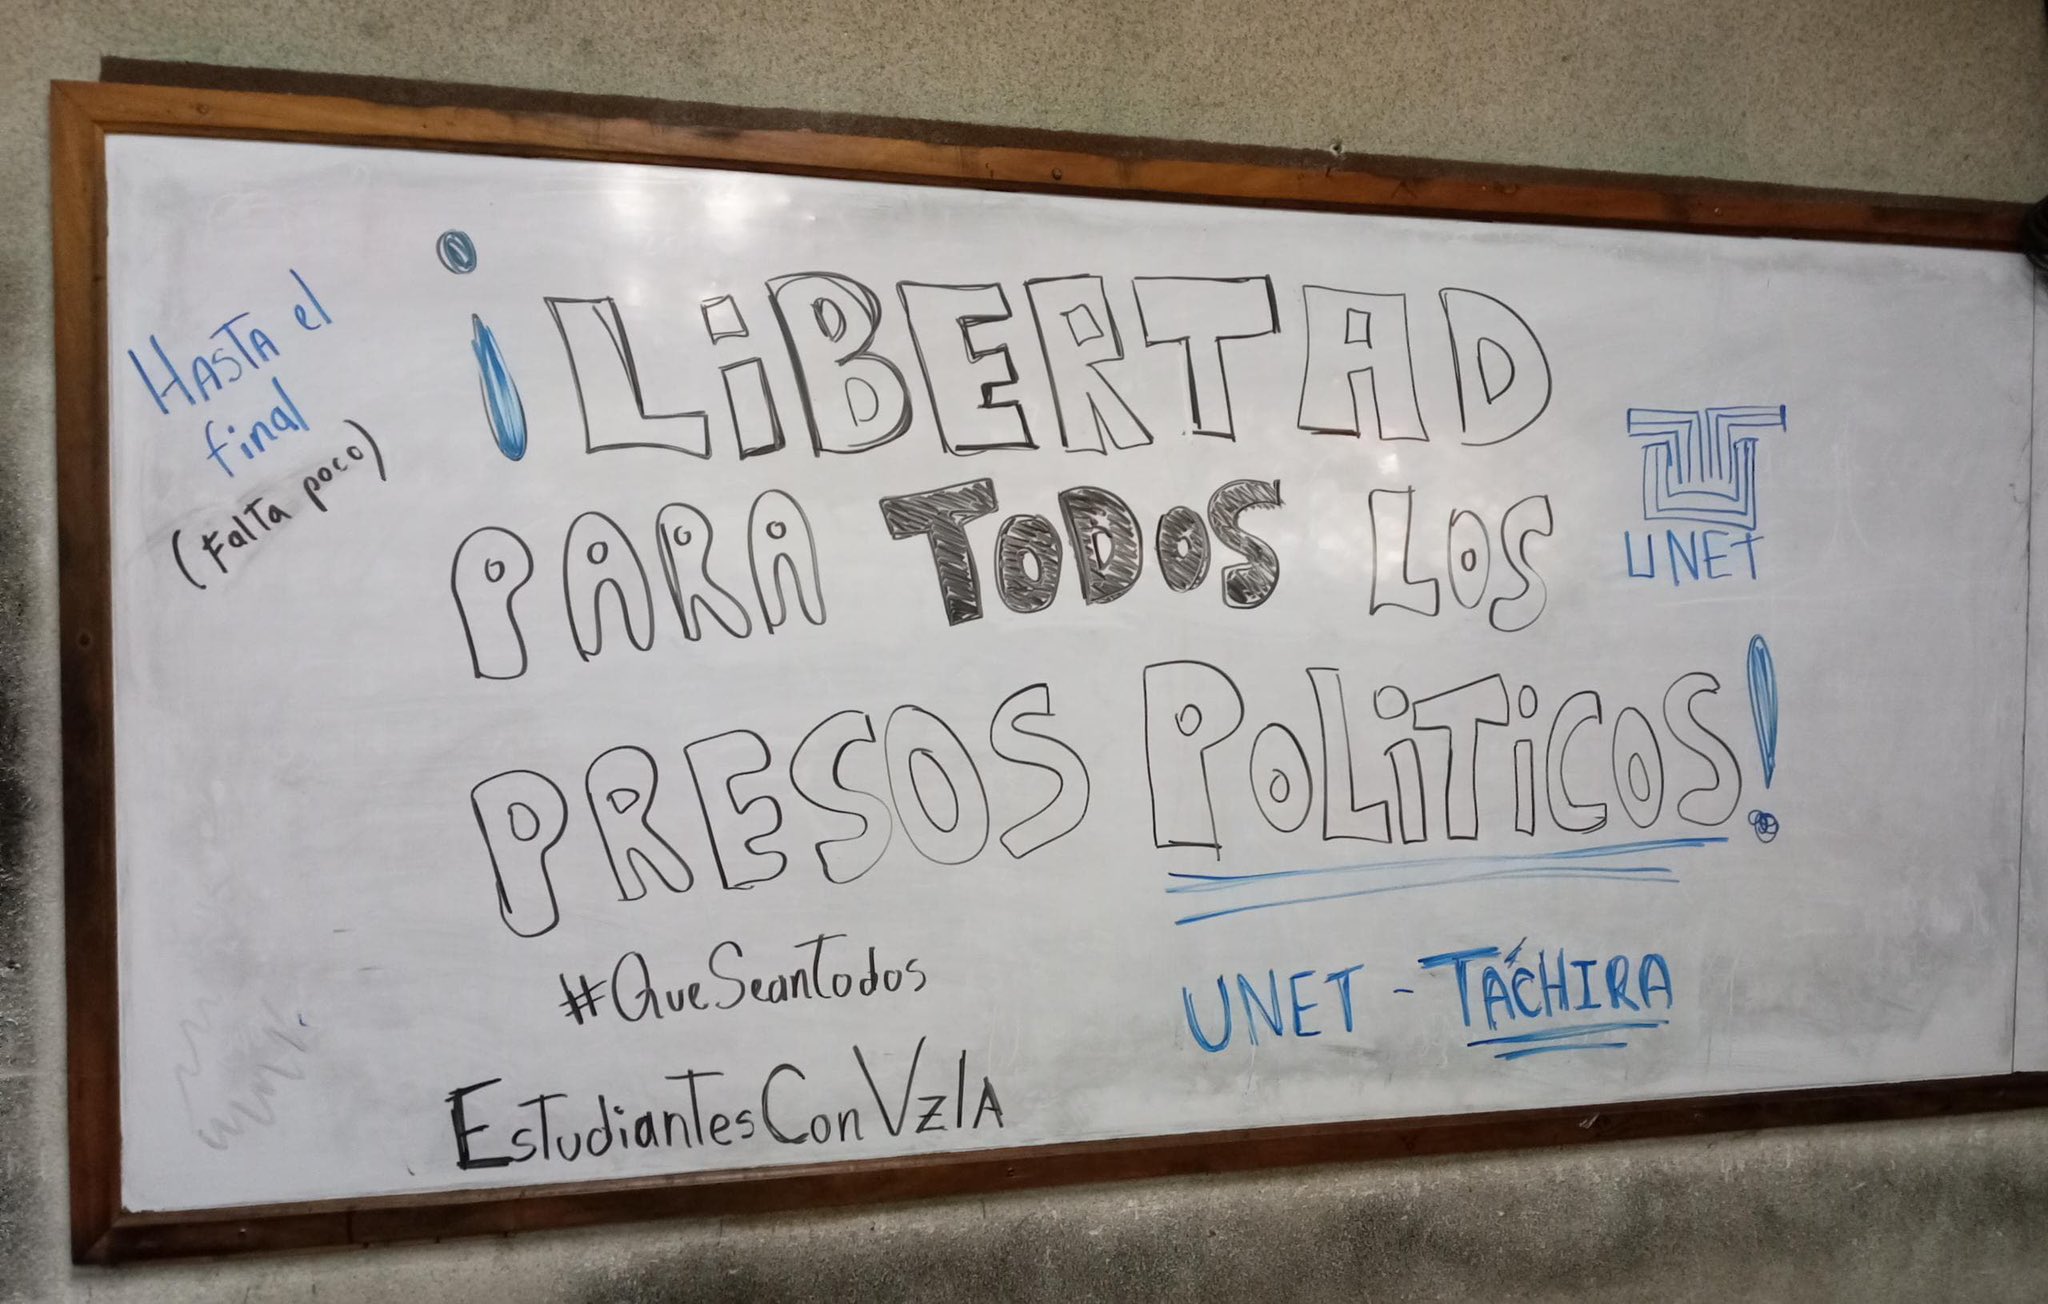 Hasta el
final
(Falta poco)
¡LiBERTAD
PARA TODOS LOS
PRESOS POLiTiCOS!
UNET
#QueSeanTodos
EstudiantesConVzlA
UNET - TÁCHIRA